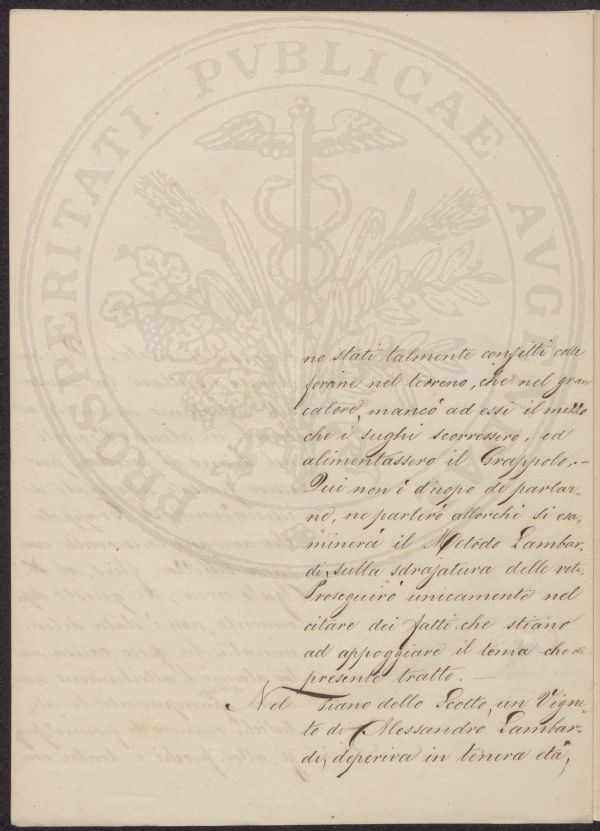 PROSPERITATI PVBLICAE AVGE
no stati talmente confitti colle
forcine nel terreno, che nel gran
calore, mancò ad essi il mezzo
che i sughi scorressero, ed
alimentassero il Grappolo. —
Qui non è d'uopo di parlar-
ne, ne parlerò allorchè si esa-
minerà il Metodo Lambar-
di, sulla sdrajatura delle viti.
Proseguirò unicamente nel
citare dei fatti che stiano
ad appoggiare il tema che di
presente tratto. —
Nel Piano dello Scotto, un Vigne-
to di Alessandro Lambar-
di, deperiva in tenera età,